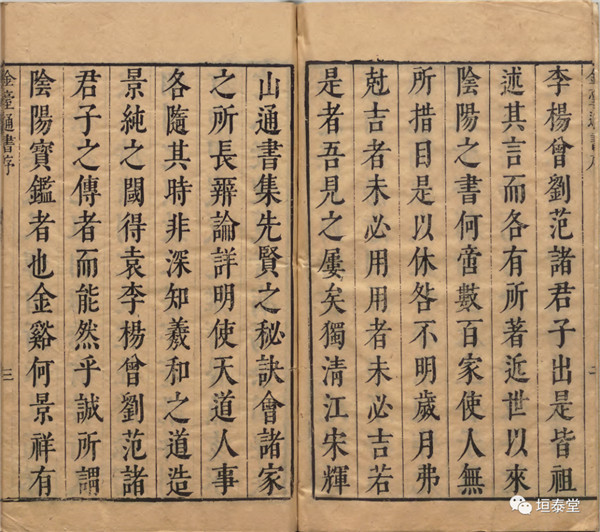 李楊曾劉范諸君子出是皆祖
述其言而各有所著近世以來
陰陽之書何啻數百家使人無
所措目是以休咎不明歲月弗
尅吉者未必用用者未必吉若
是者吾見之屢矣獨清江宋輝
山通書集先賢之秘訣會諸家
之所長辨論詳明使天道人事
各隨其時非深知羲和之道造
景純之閫得袁李楊曾劉范諸
君子之傳者而能然乎誠所謂
陰陽寶鑑者也金谿何景祥有
通書序
三
垣泰堂